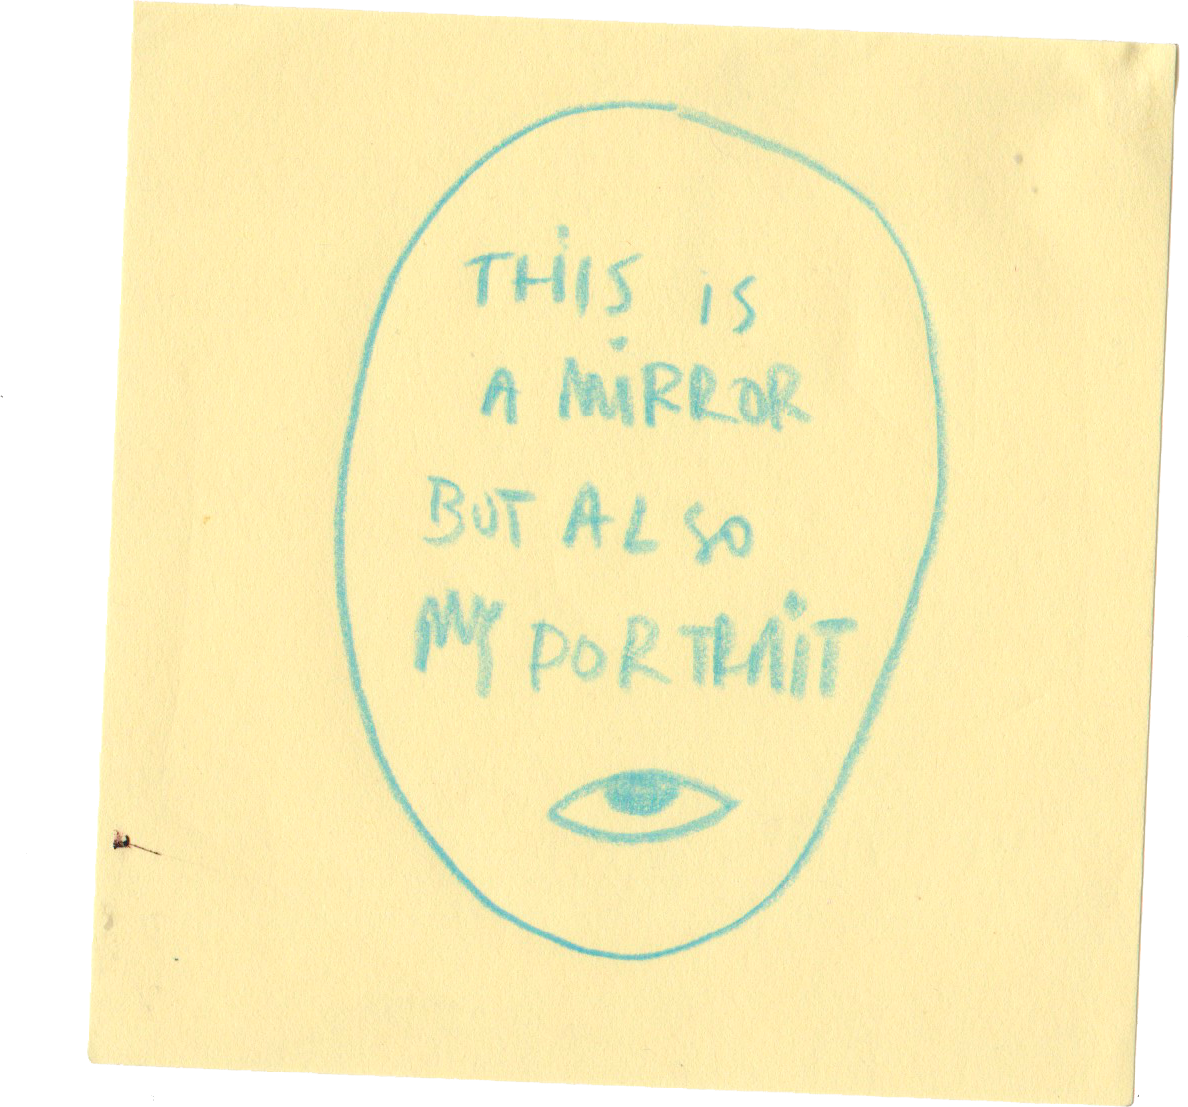 THIS IS
A MIRROR
BUT ALSO
MY PORTRAIT